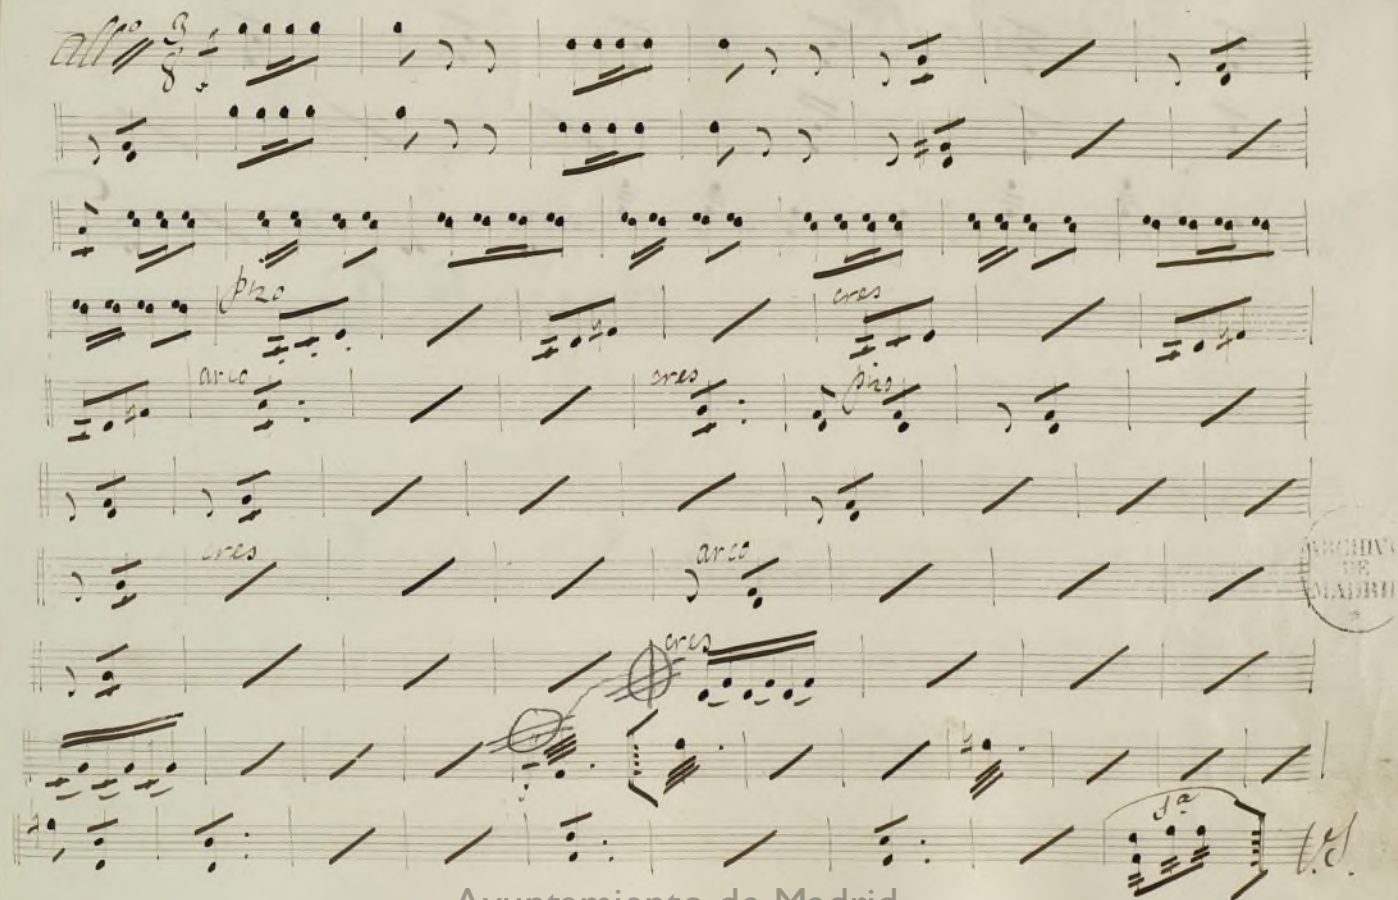 allº 3/8
pizo
cres
arco cres pizo
cres arco
ARCHIVO
DE
MADRID
cres
1ª V.S.
Ayuntamiento de Madrid